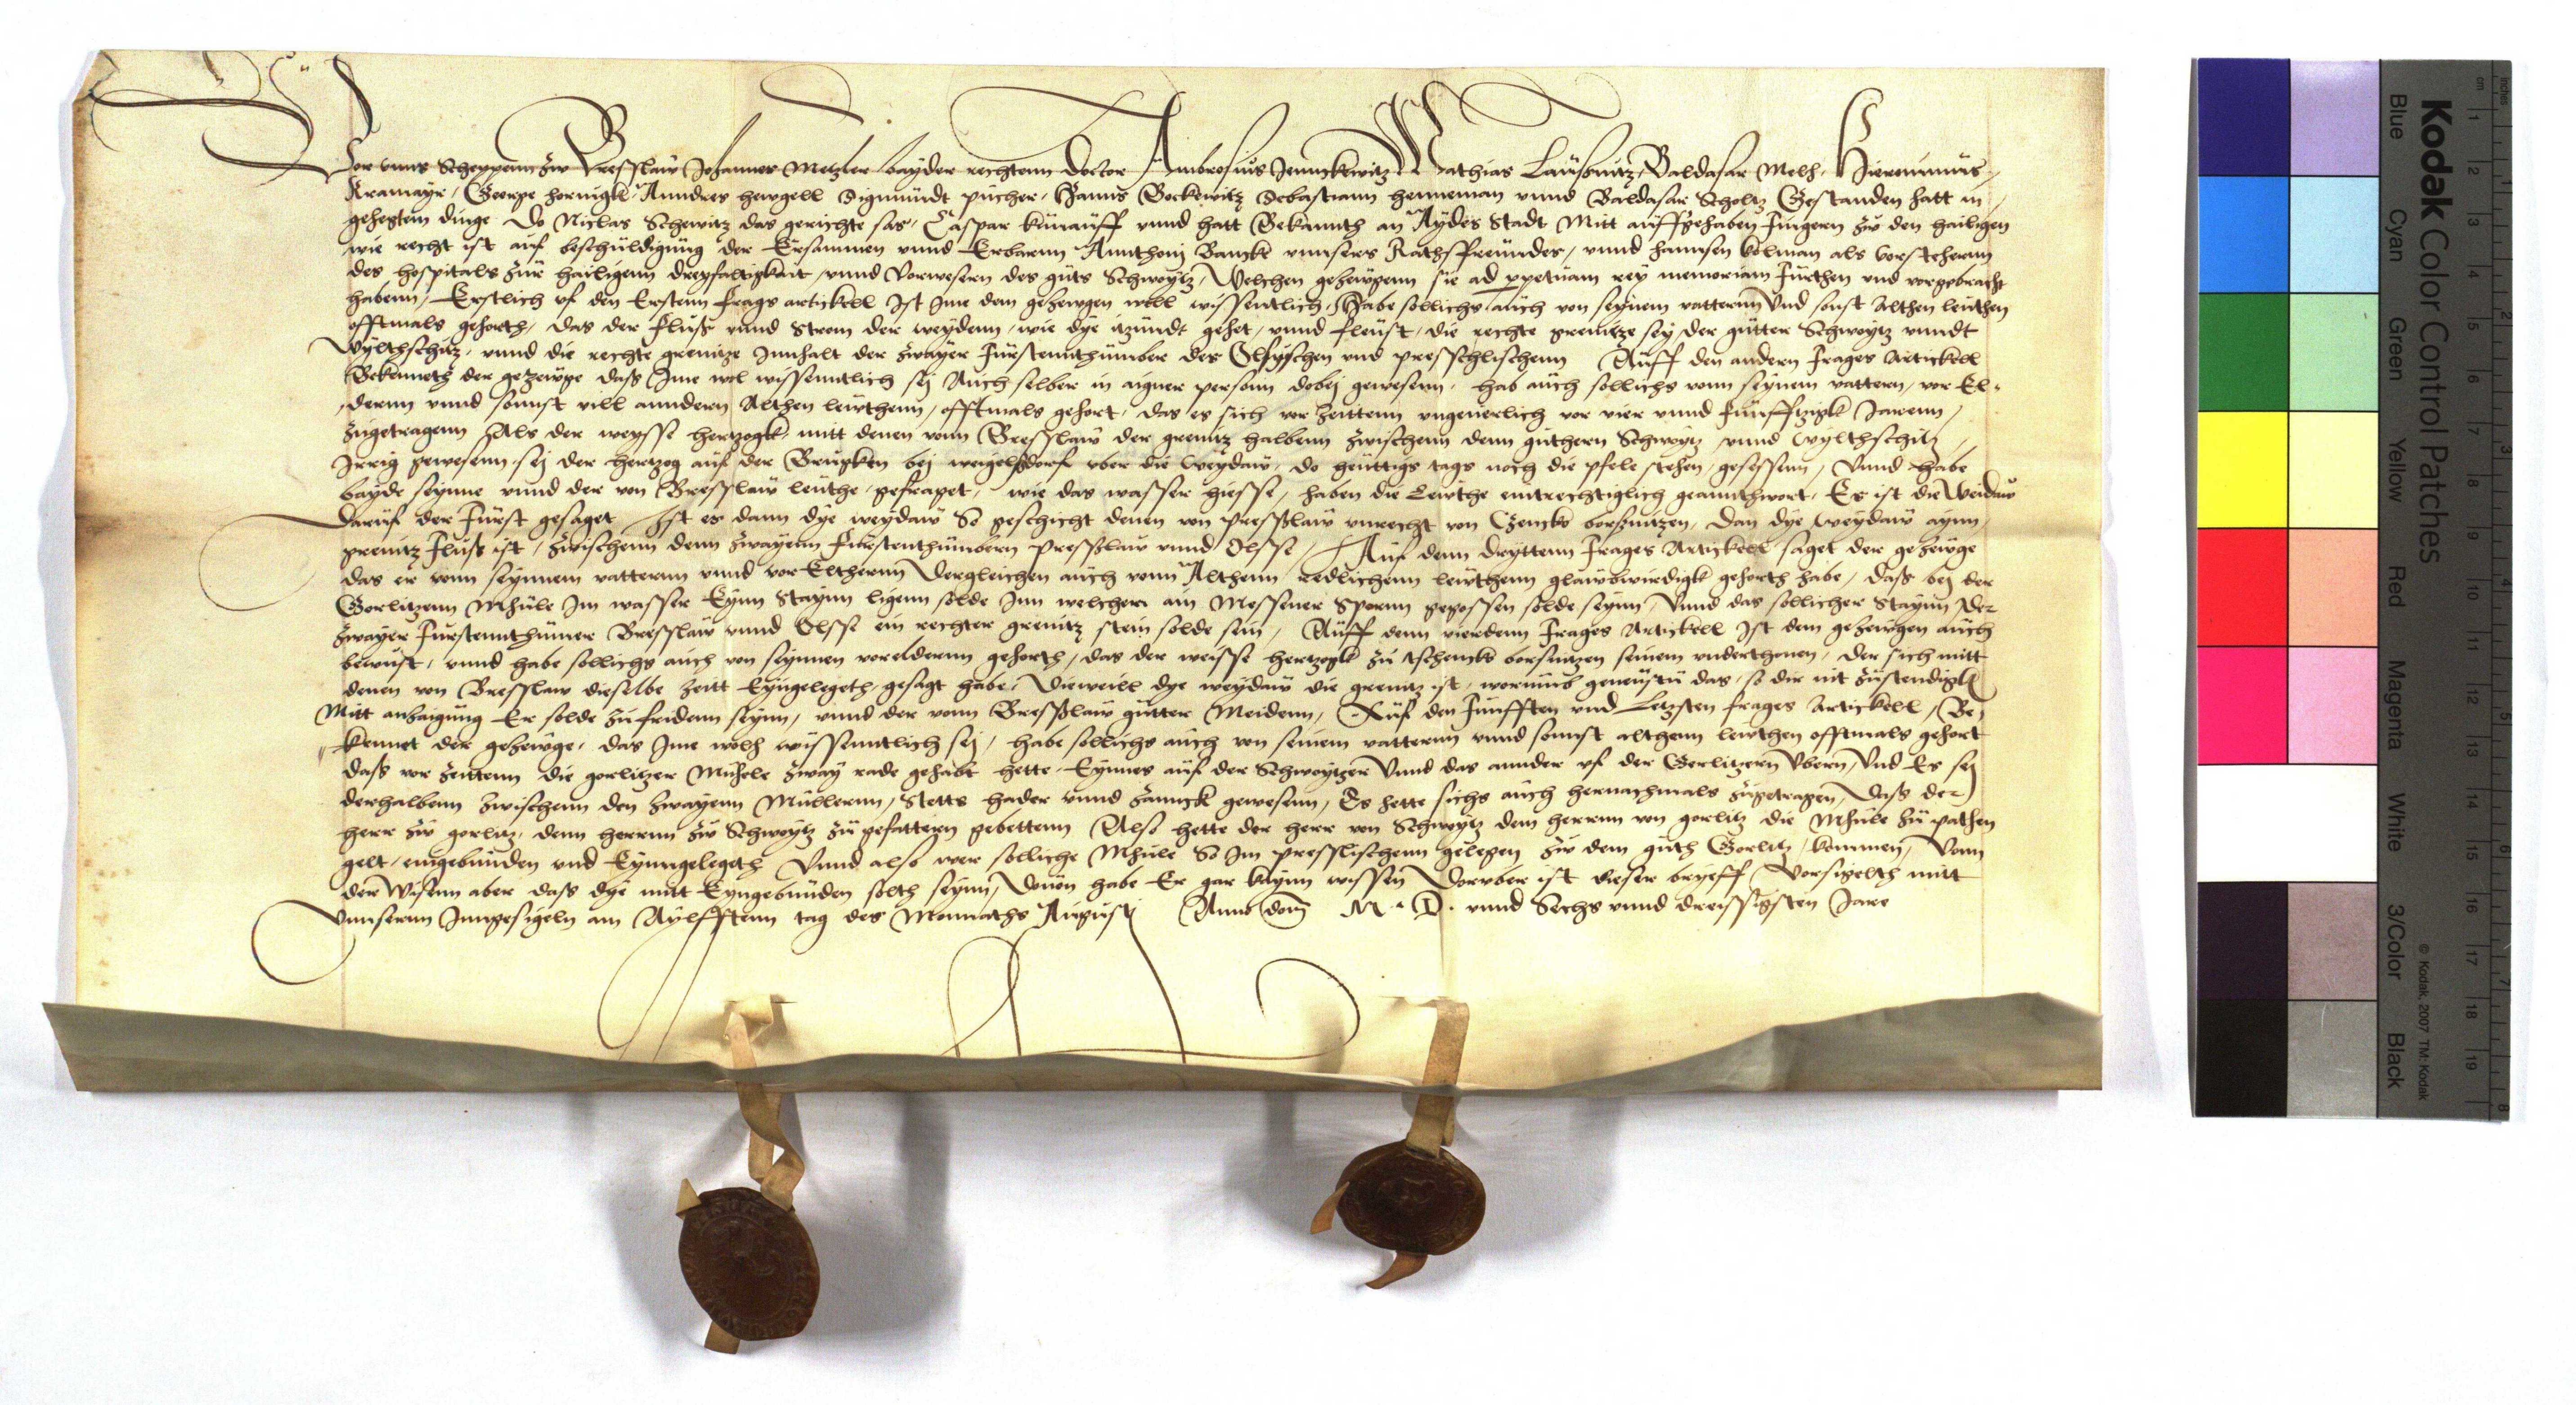 Vor vnns Scheppenn zw Bresslaw Johannes Metzler bayder rechtenn Doctor Ambrosius Jennckewitz Mathias Laüsnitz, Baldasar Melh, Hieronimus
Kramayr, Georpe hornigk Anndres hewgell Sigmündt pücher, Hanns Bockewitz Sebastiann henneman vnnd Baldasar Scholtz Gestanden hatt in
gehegtem dinge Do Niclas Schewitz das gerichte sas, Caspar künaüff vnnd hatt Bekannth an Aydes Stadt Mitt aüffgehaben Fingern zw den hailigen
wie recht ist auf beschüldigüng der Ersammen vnnd Erbarnn Annthonj Banckr vnnsers Rathsfreündes, vnnd hannsen kolman als vorsteherrnn
des hospitals zür hailigenn dreyfaltigkait vnnd Vorwesern des güts Schwoytz, Welchen gezewgenn sie ad ppetuam rey memoriam Fürthen vnd vorgebracht
habenn, Erstlich vf den Erstenn frags artickell Ist Jme dem gezewgen woll wissentlich, Habe sollichs auch von seynem vatternn Vnd sonst Althen leüthen
offtmals gehorth, das der fluss vnnd Strom der weydenn, wie dye itzündt gehet, vnnd fleüst, die rechte grenitze sey der gütter Schwoytz vnndt
Wylthschitz, vnnd die rechte grenitze Jnnhalt der zwayer Fürstennthümber des Olsyschen vnd presschlischenn Aüff den andern frages Artickell
Bekenneth der gezewge dass Jme wol wissenntlich sej Auch selber in aigner personn dobej gewesenn, hab auch sollichs vonn seynem vattern, vor El-
dernn vnnd sonnst vill anndern Althen leüthenn, offtmals gehort, das es sich vor zeittenn vngeuerlich vor vier vnnd fünfftzigk Jarenn,
zügetragenn Als der weysse hertzogk, mitt denen vonn Bresslaw der grenitz halbenn zwischenn denn güthern Schwoytz vnnd Wylthschitz,
Jrrig gewesenn, sej der hertzog auf der Brüpken bej weigelsdorf vber die Weydaw, do heüttigs tags noch die pfele stehen, gesessenn, Vnnd habe
bayde seynne vnnd der von Bresslaw leüthe, gefraget, wie das wasser hiesse, haben die Lewthe eintrechtiglich geannthwort, Es ist die Weidaw
Darüf der Fürst gesaget Ist es dann dye weydaw So geschicht denen von presslaw vnrecht von Czencko borsnitzen, Dan dye weydaw aynn
grenitz fluss ist, zwischenn denn zwayenn Fürstenthümbern presslaw vnnd Olsse, Auf denn dryttenn frages Artickell saget der gezewge
das er vonn seynnem vatternn vnnd vor Eltherrnn Dergleichen auch vonn Althenn redlichenn leüthenn glaüwirdigk gehorth habe, dass bej der
Gorlitzenn Mhüle Jm wasser Eynn Staynn ligenn solde Jnn welchem ain Messener Spornn gegossen solde seynn, Vnnd das sollicher Staynn der
zwayer Fürstennthümer Bresslaw vnnd Olsse ein rechter grenitz stein solde sein, Aüff denn vierdenn frages Artickell Ist dem gezewgen auch
bewüst, vnnd habe sollichs auch von seynnen voreldernn gehorth, das der weisse hertzogk zü tschencko borsnitzen seinem vnderthonen, der sich mitt
denen von Bresslaw dieselbe zeitt Eyngelegeth, gesagt habe, Dieweill dye weydaw die grenitz ist, worümb geneüstü das, so dir nit züstendigk
Mitt anzaigüng Er solde zü fridenn seynn, vnnd der vonn Bresslaw gütter Meidenn, Auf den Fünfften vnd Letzsten frages Artickell, Be
kennet der gezewge, das Jme wolh wissenntlich sej, habe sollichs auch von seinem vatternn vnnd sonnst althenn lewthen offtmals gehort
dass vor zeittenn die gorlitzer Mühele zway rade gehabt hette, Eynnes auf der Schwoytzer Vnnd das annder vf der Gorlitzern Vbern, Vnd Es sej
derhalbenn zwischenn den zwayenn Müllernn, Stetts hader vnnd zannck gewesenn, Es hette sichs auch hernachmals zügetragen, Dass der
herr zw gorlitz, denn herrnn zw Schwoytz zü gefattern gebettenn Also hette der herr von Schwoytz dem herrnn von gorlitz die Mhüle zü pathen
gelt, eingebünden vnd Eynngelegeth Vnnd also wer solliche Mhüle So Jm presslischenn gelegen zw dem güth Gorlitz, kommen, Vonn
der Wisenn aber dass dye mitt Eyngebünden solth seynn, douon habe Er gar kaynn wissen Doruber ist dieser bryeff, Vorsigelth mitt
Vnnsernn Jnngesigeln am Aylfftenn tag des Monnaths Augustj Anno dom M. D. vnnd Sechs vnnd dreissigsten Jare
Kodak Color Control Patches
Blue Cyan Green Yellow Red Magenta White 3/Color Black
© Kodak, 2007 TM: Kodak
cm 1 2 3 4 5 6 7 8 9 10 11 12 13 14 15 16 17 18 19
inches 1 2 3 4 5 6 7 8